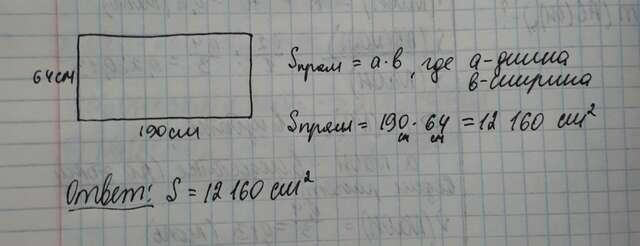 64см
190см
Sпрям = a·в, где a-длина
в-ширина
Sпрям = 190 см · 64 см = 12 160 см²
Ответ: S = 12160 см²